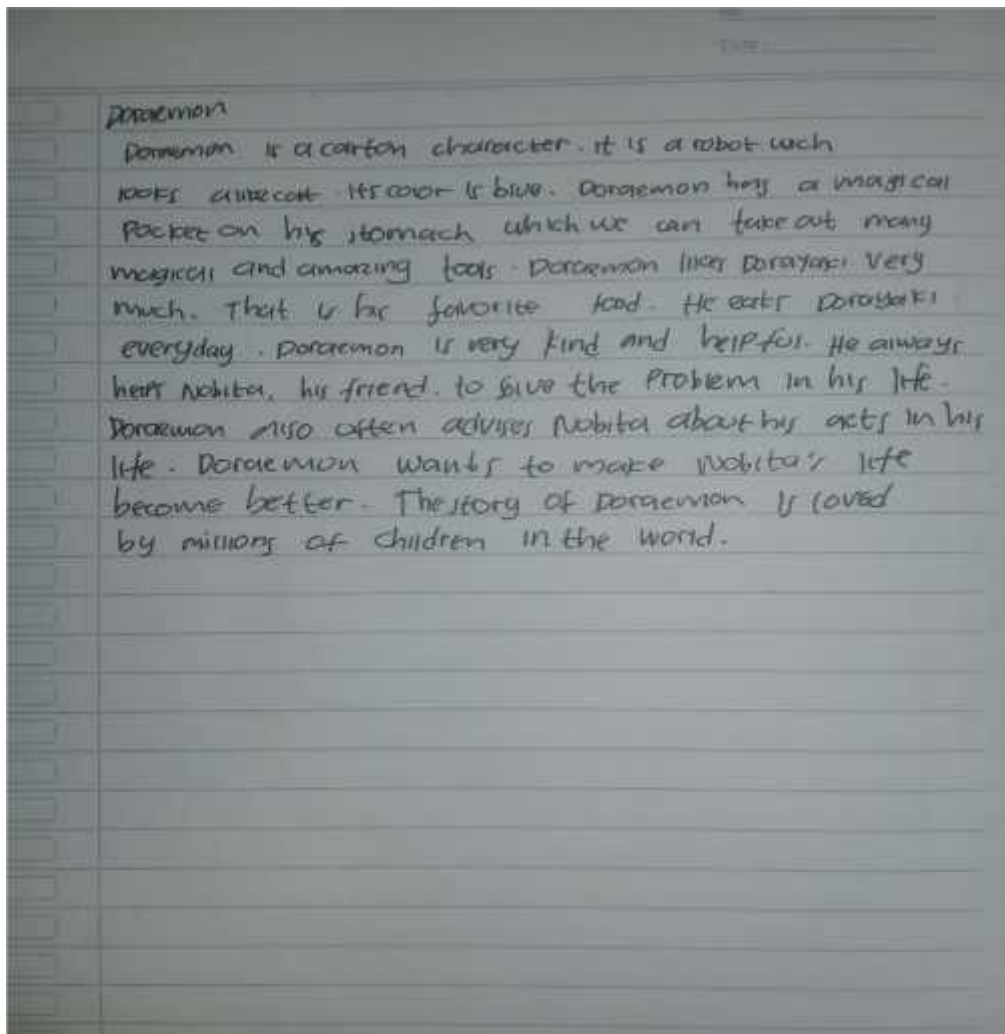 Date :
Doraemon
Doraemon is a carton character. it is a robot wich
looks a cat. Its color is blue. Doraemon has a magical
Pocket on his stomach which we can take out many
magical and amazing tools. Doraemon likes Dorayaki very
much. That is his favorite food. He eats Dorayaki
everyday. Doraemon is very kind and helpful. He always
helps Nobita, his friend. to the Problem in his life.
Doraemon Also often advises Nobita about his acts in his
life. Doraemon wants to make Nobita's life
become better. The story of Doraemon is loved
by millions of children in the world.